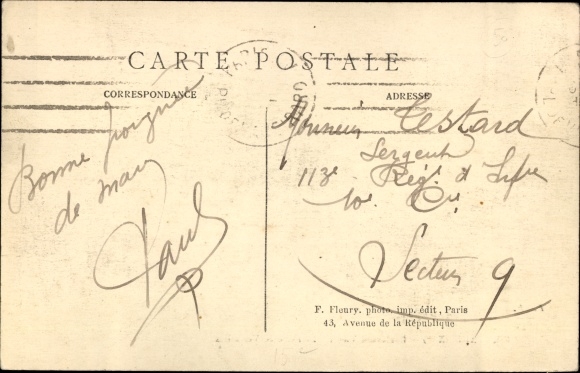 CARTE POSTALE
CORRESPONDANCE
ADRESSE
Bonne poignée
de main
Paul
Monsieur Testard
Sergent
113e Rég. d'Infie
10e Cie
Secteur 9
F. Fleury. photo. imp. édit, Paris
43, Avenue de la République